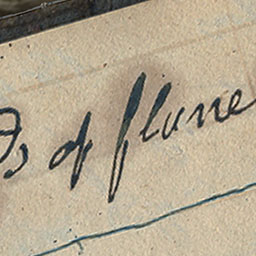 of flune